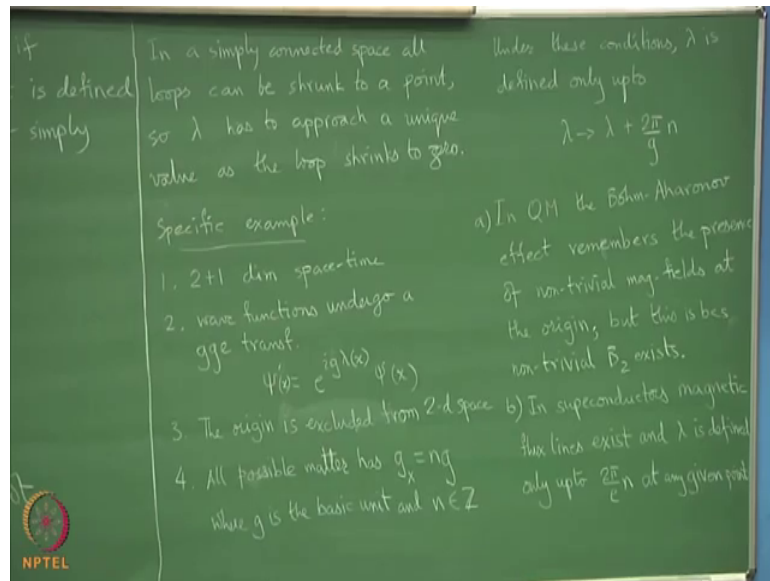 if
is defined
simply
In a simply connected space all
loops can be shrunk to a point,
so λ has to approach a unique
value as the loop shrinks to zero.
Specific example:
1. 2+1 dim space-time
2. wave functions undergo a
gge transf.
ψ'(x) = e^{igλ(x)} ψ(x)
3. The origin is excluded from 2-d space
4. All possible matter has g_x = ng
where g is the basic unit and n ∈ Z
Under these conditions, λ is
defined only upto
λ → λ + 2π/g n
a) In QM the Bohm-Aharonov
effect remembers the presence
of non-trivial mag. fields at
the origin, but this is bcs
non-trivial B_2 exists.
b) In supeconductors magnetic
flux lines exist and λ is defined
only upto 2π/e n at any given point
NPTEL